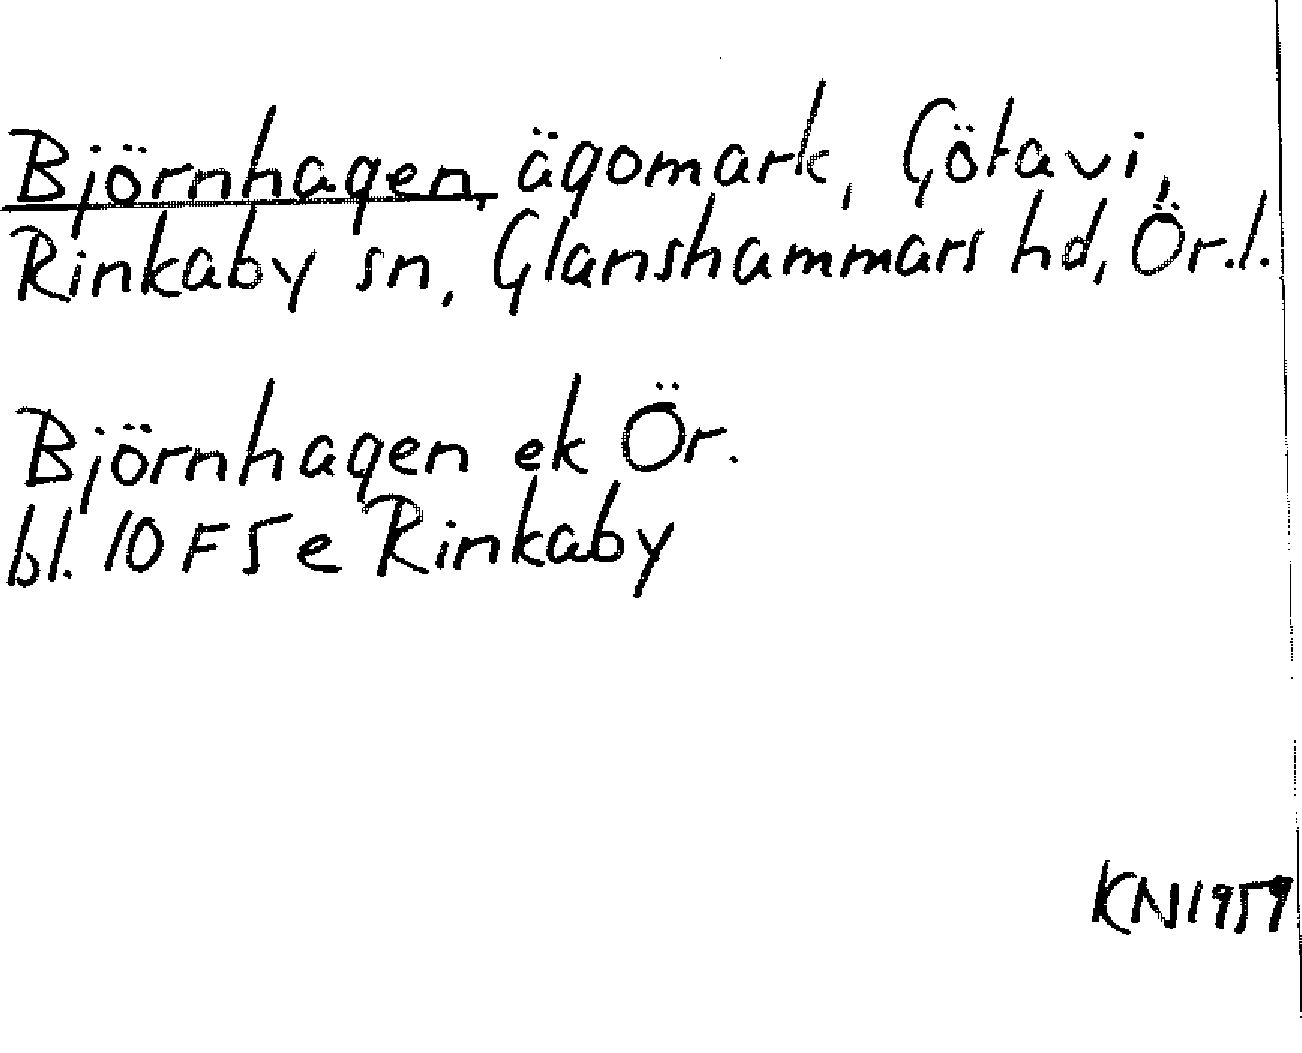 Björnhagen, ägomark, Götavi,
Rinkaby sn, Glanshammars hd, Ör.l.
Björnhagen ek Ör.
bl. 10 F 5 e Rinkaby
KN 1959